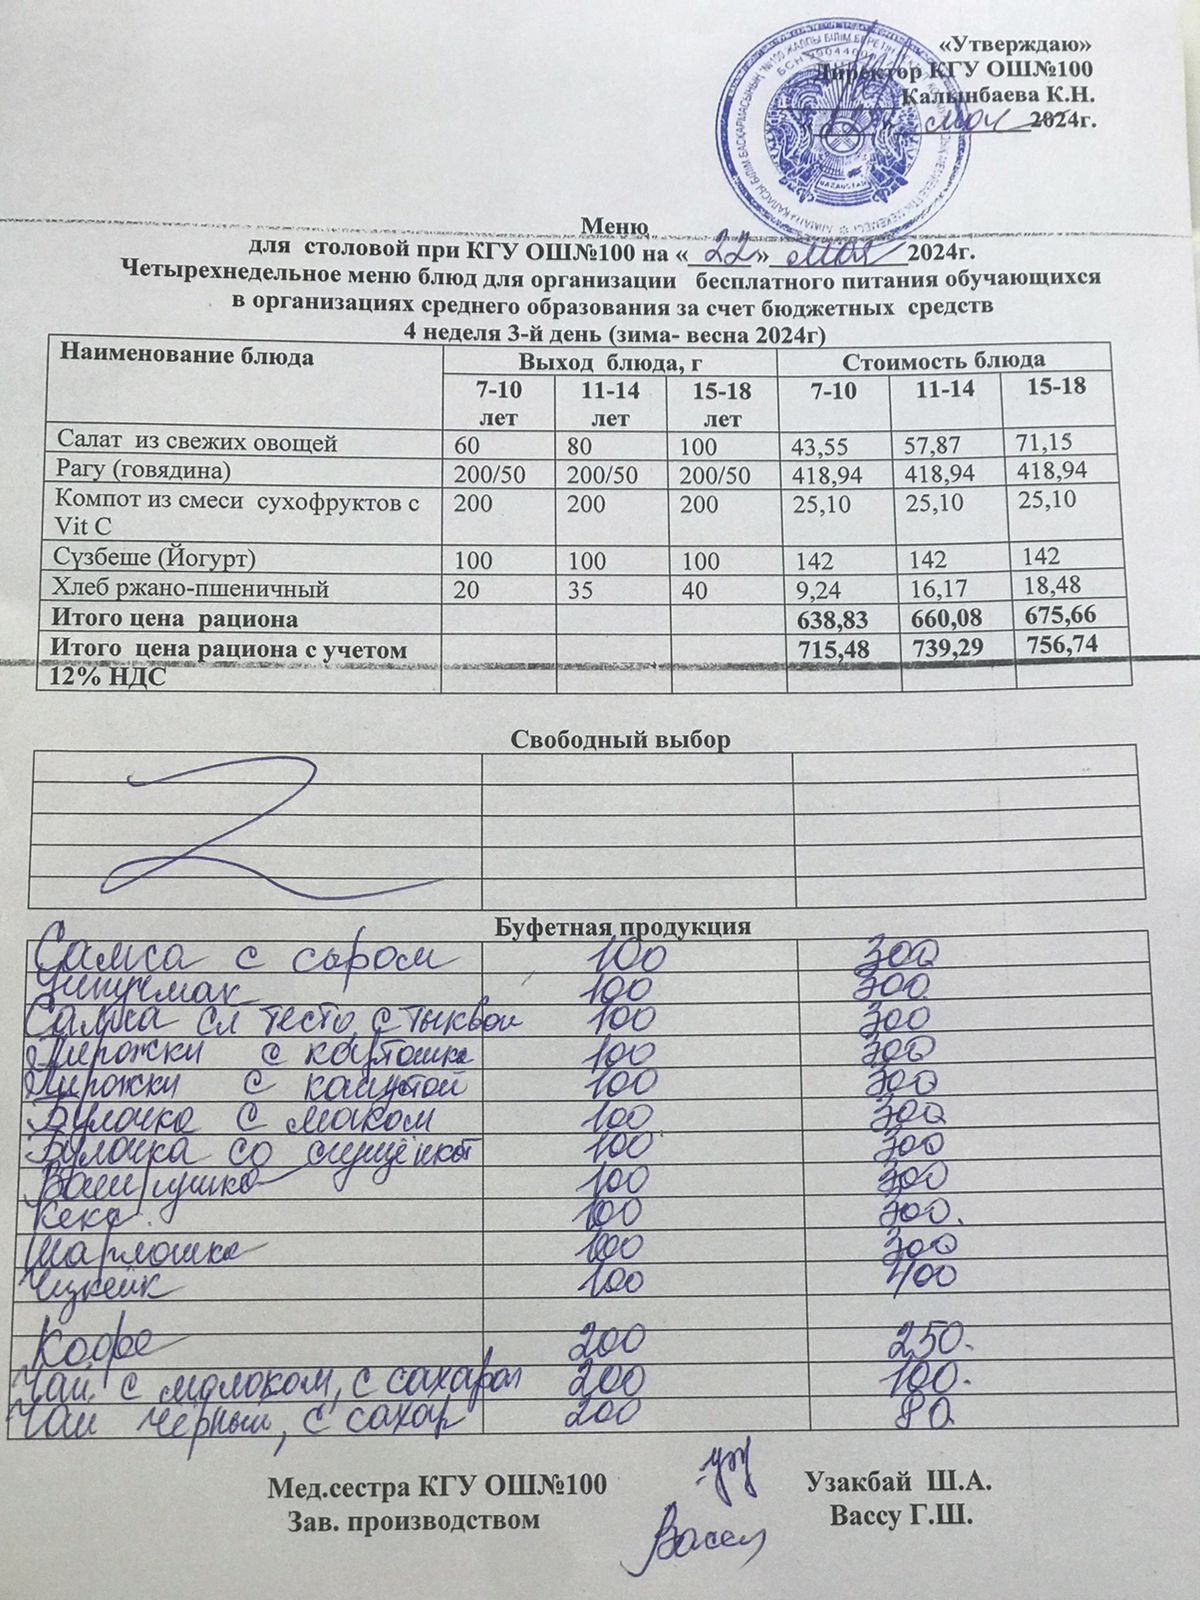 «Утверждаю»
Директор КГУ ОШ№100
Калынбаева К.Н.
«22» мая 2024г.
KAZAKHSTAN
Меню
для столовой при КГУ ОШ№100 на «22» мая 2024г.
Четырехнедельное меню блюд для организации бесплатного питания обучающихся
в организациях среднего образования за счет бюджетных средств
4 неделя 3-й день (зима- весна 2024г)
Наименование блюда Выход блюда, г Стоимость блюда
7-10 лет 11-14 лет 15-18 лет 7-10 11-14 15-18
Салат из свежих овощей 60 80 100 43,55 57,87 71,15
Рагу (говядина) 200/50 200/50 200/50 418,94 418,94 418,94
Компот из смеси сухофруктов с 200 200 200 25,10 25,10 25,10
Vit C
Сүзбеше (Йогурт) 100 100 100 142 142 142
Хлеб ржано-пшеничный 20 35 40 9,24 16,17 18,48
Итого цена рациона 638,83 660,08 675,66
Итого цена рациона с учетом 715,48 739,29 756,74
12% НДС
Свободный выбор
Буфетная продукция
Самса с сыром 100 300
Учпучмак 100 300
Самса сл тесто с тыквой 100 300
Пирожки с картошка 100 300
Пирожки с капустой 100 300
Булочка с маком 100 300
Булочка со сгущёнкой 100 300
Ватрушка 100 300
Кекс. 100 300.
Шарлотка 100 300
Чизкейк 100 400
Кофе 200 250.
Чай с молоком, с сахаром 200 100.
Чай чёрный, с сахар 200 80
Мед.сестра КГУ ОШ№100 Узакбай Ш.А.
Зав. производством Вассу Г.Ш.